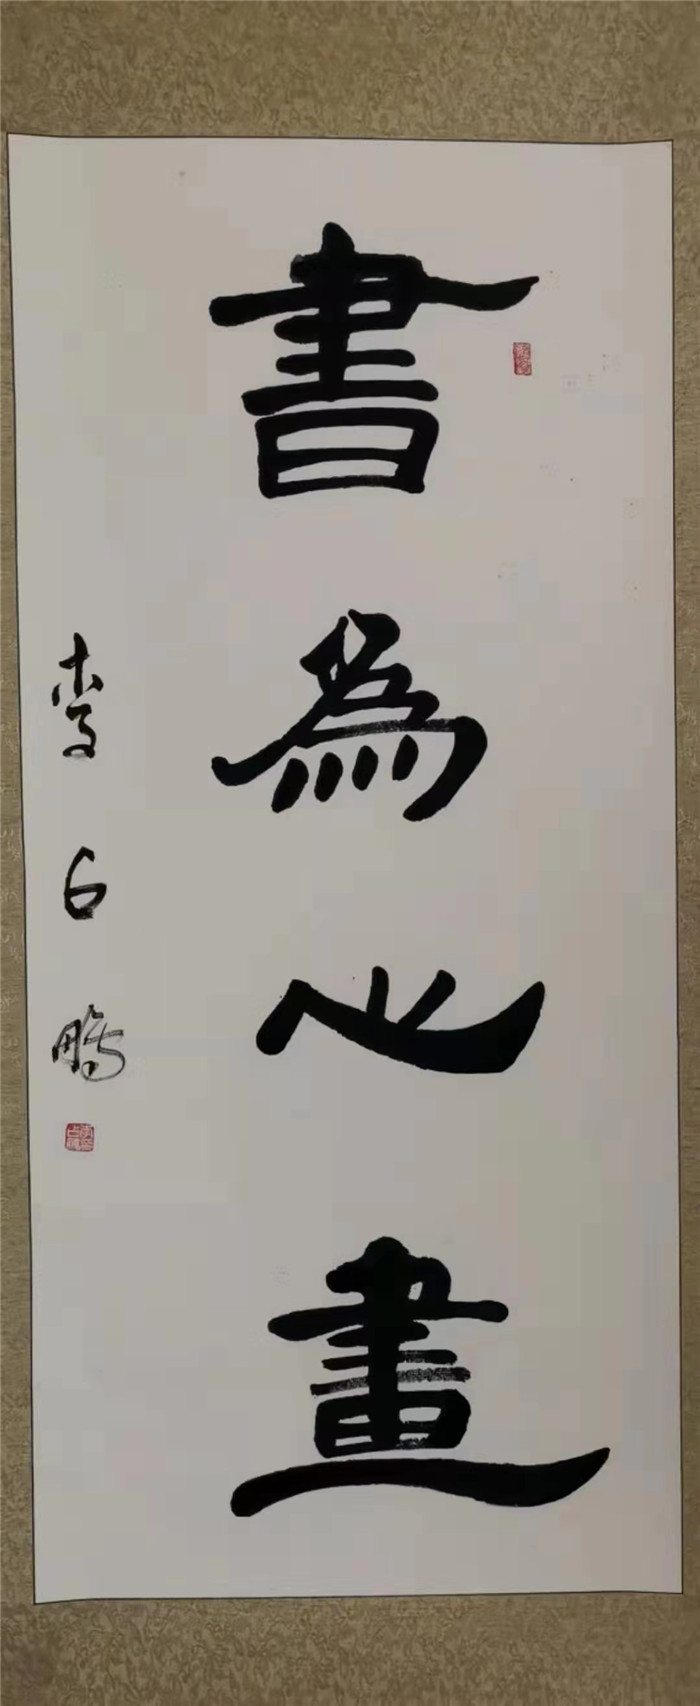 書為心畫
李占鵬